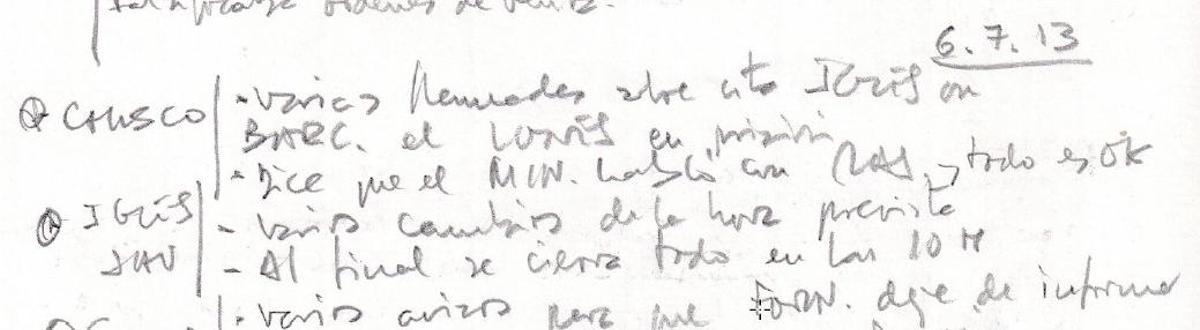 órdenes de venta.
6.7.13
COSSCO - Varias llamadas sobre cita IGLIS en
BARC. el LUNES en prisión
- Dice que el MIN. habló con RAS, todo es OK
IGLIS - Varios cambios de la hora prevista
JAV - Al final se cierra todo en las 10 H
- Varios avisos para que deje de informar